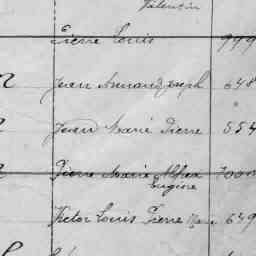 Valentin
Pierre Louis 999
Jean Armand Joseph 648
Jean Marie Pierre 554
Pierre Marie Alfred
Eugène
Victor Louis Pierre Marie 649